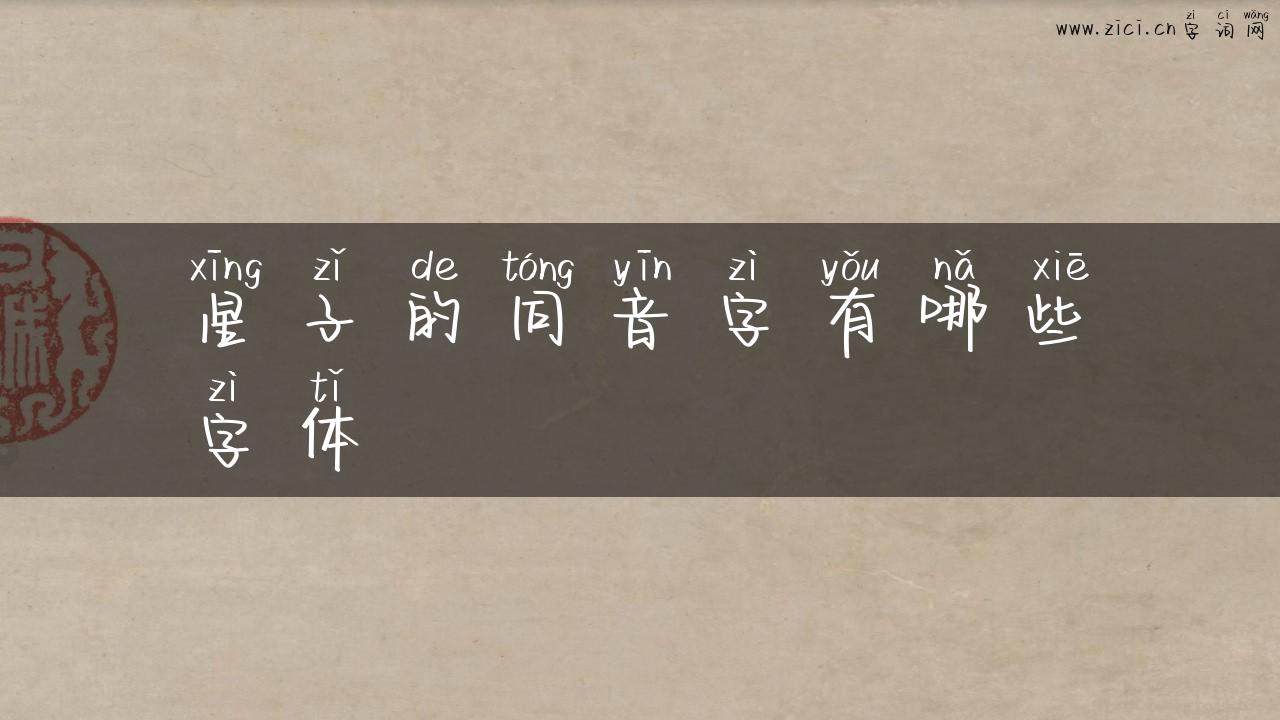 zì cí wǎng
www.zici.cn 字 词 网
xīng zǐ de tóng yīn zì yǒu nǎ xiē
星 子 的 同 音 字 有 哪 些
zì tǐ
字 体